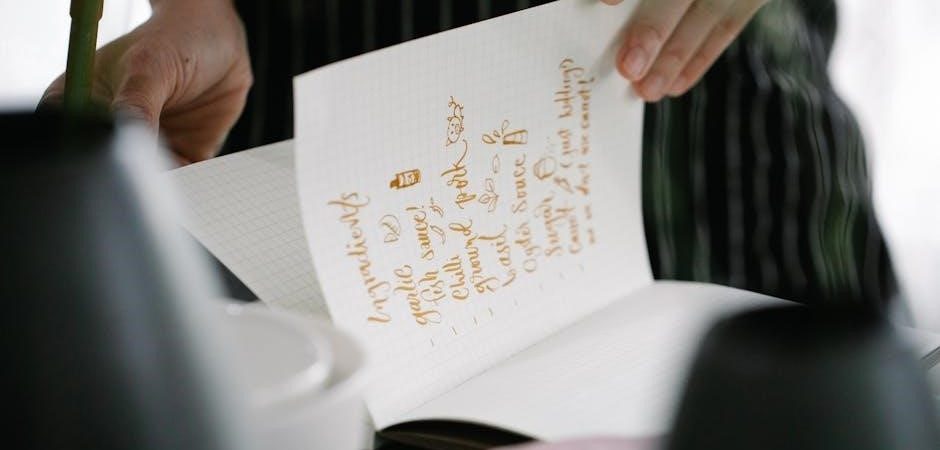 Ingredients
- garlic
- fish sauce!
- Chilli
- ground pork
- basil
- Oyster Sauce
- Sugar
- Carrot (just kidding
we don't use carrot!